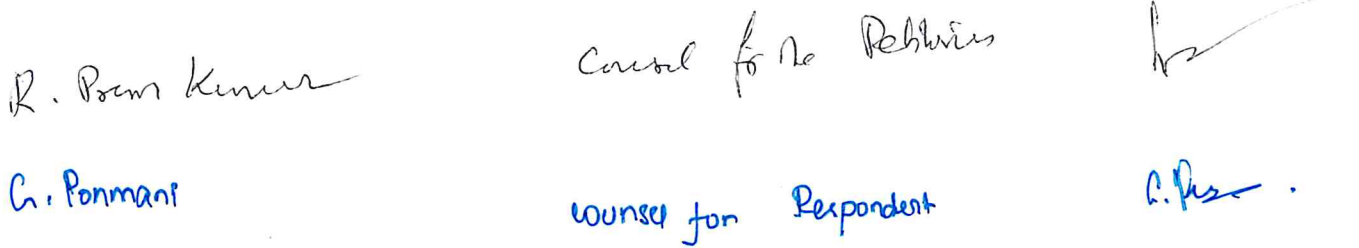 R. Prem Kumar Counsel for the Petitioner
G. Ponmani counsel for Respondent